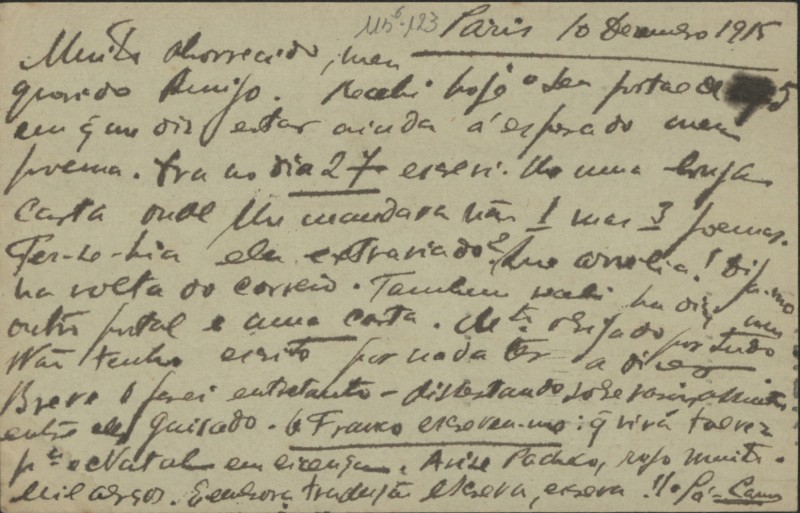 115⁶-123
Paris 10 Dezembro 1915
Muito aborrecido, meu
querido Amigo. Recebi hoje o seu postal de 5
em q̃ me diz estar ainda á espera do meu
poema. Ora no dia 27 escrevi-lhe uma longa
carta onde lhe mandava não 1 mas 3 poemas.
Ter-se-hia ela extraviado? Que arrelia! Diga-mo
na volta do correio. Tambem recebi ha dias um
outro postal e uma carta. Mto obrigado por tudo
Não tenho escrito por nada ter a dizer
Breve o farei entretanto - dissertando sobre
entre eles Guisado. O Franco escreveu-me: q̃ virá talvez
pelo Natal em licença. Avise Pacheco, rogo muito.
Mil abraços. Embora tradução escreva, escreva!! Sá-Carn